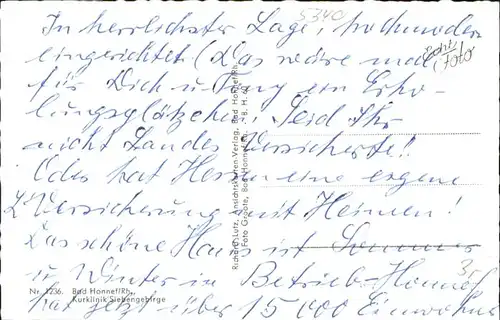 5340
In herrlichster Lage, hochmodern
eingerichtet. (Das wäre mal
Echt
Foto
für Dich u. Tung ein Erho-
lungsplätzchen. Seid Ihr
nicht Landes Versicherte!!
Oder hat Hessen eine eigene
L'Versicherung mit Heimen!
Das schöne Haus ist Sommer
u Winter in Betrieb. Honnef
hat jetzt über 15 000 Einwohner
Nr. 1236. Bad Honnef/Rh.,
Kurklinik Siebengebirge
Richard Lutz, Ansichtskarten-Verlag, Bad Honnef/Rh.
Foto Groote, Bad Honnef